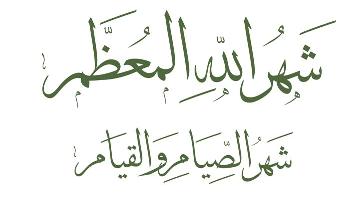 شَهْرُ اللّٰهِ الْمُعَظَّم
شَهْرُ الصِّيَامِ وَالْقِيَام